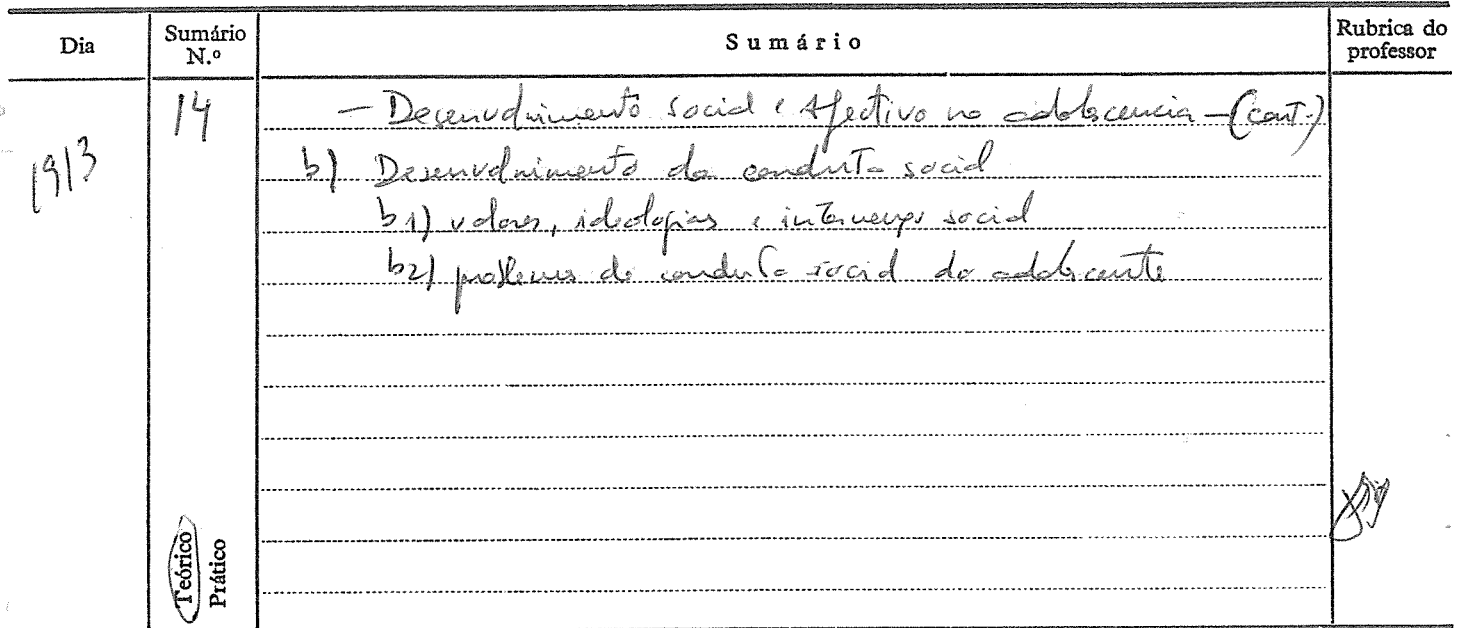 Dia
Sumário N.º
Sumário
Rubrica do professor
19/3
14
- Desenvolvimento social e Afectivo na adolescencia - (cont.)
b) Desenvolvimento da conduta social
b1) valores, ideologias e intervenção social
b2) problemas de conduta social do adolescente
Teórico
Prático